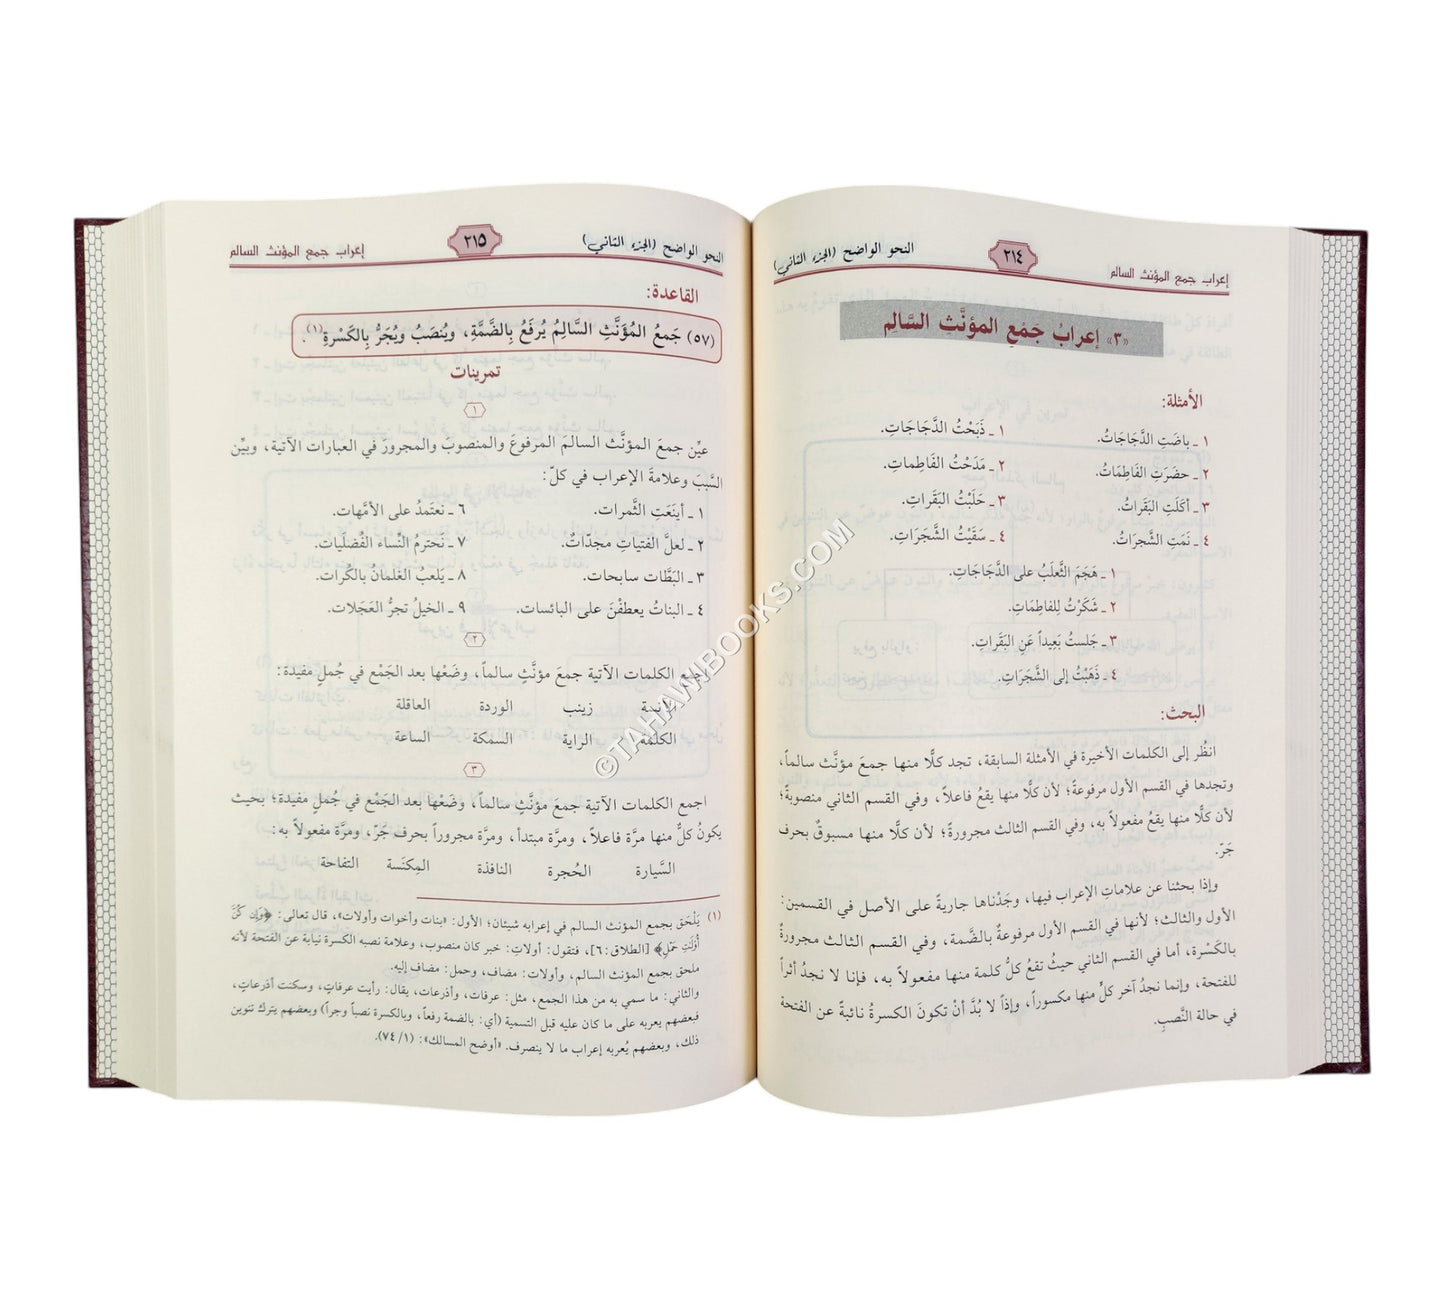 اعراب جمع المؤنث السالم ٢١٤ النحو الواضح (الجزء الثاني)
«٣» إعرابُ جَمْعِ المؤنَّثِ السَّالِم
الأمثلة:
١ ـ باضَتِ الدَّجَاجَاتُ. ١ ـ ذَبَحْتُ الدَّجَاجَاتِ.
٢ ـ حضَرَتِ الفَاطِمَاتُ. ٢ ـ مَدَحْتُ الفَاطِماتِ.
٣ ـ أكَلَتِ البَقَرَاتُ. ٣ ـ حَلَبْتُ البَقَرَاتِ.
٤ ـ نَمَتِ الشَّجَرَاتُ. ٤ ـ سَقَيْتُ الشَّجَرَاتِ.
١ ـ هَجَمَ الثَّعلَبُ على الدَّجَاجَاتِ.
٢ ـ شَكَرْتُ لِلفاطِمَاتِ.
٣ ـ جَلستُ بَعِيداً عَنِ البَقَراتِ.
٤ ـ ذَهَبْتُ إلى الشَّجَرَاتِ.
البحث:
انظُر إلى الكلمات الأخيرة في الأمثلة السابقة، تجد كلًّا منها جمعَ مؤنَّث سالماً،
وتجدها في القسم الأول مرفوعةً؛ لأن كلًّا منها يقعُ فاعلاً، وفي القسم الثاني منصوبةً؛
لأن كلًّا منها يقعُ مفعولاً به، وفي القسم الثالث مجرورةً؛ لأن كلًّا منها مسبوقٌ بحرف
جَرّ.
وإذا بحثنا عن علاماتِ الإعراب فيها، وجَدْناها جاريةً على الأصل في القسمين:
الأول والثالث؛ لأنها في القسم الأول مرفوعةٌ بالضَّمة، وفي القسم الثالث مجرورةٌ
بالكَسْرة، أما في القسم الثاني حيثُ تقعُ كلُّ كلمة منها مفعولاً به، فإنا لا نجدُ أثراً
للفتحة، وإنما نجدُ آخر كلٍّ منها مكسوراً، وإذاً لا بُدَّ أنْ تكونَ الكسرةُ نائبةً عن الفتحة
في حالة النَّصبِ.
النحو الواضح (الجزء الثاني) ٢١٥ اعراب جمع المؤنث السالم
القاعدة:
(٥٧) جَمعُ المُؤَنَّثِ السَّالِمُ يُرفَعُ بِالضَّمَّةِ، ويُنصَبُ ويُجَرُّ بِالكَسْرةِ(١).
تمرينات
١
عيِّن جمعَ المؤنَّث السالمَ المرفوعَ والمنصوبَ والمجرورَ في العبارات الآتية، وبيِّن
السَّببَ وعلامةَ الإعراب في كلّ:
١ ـ أينَعَتِ الثَّمرات. ٦ ـ نعتَمدُ على الأمَّهات.
٢ ـ لعلَّ الفتياتِ مجدّاتٌ. ٧ ـ نَحترمُ النِّساءَ الفُضلَيات.
٣ ـ البَطَّات سابحات. ٨ ـ يَلعبُ الغلمانُ بالكُرات.
٤ ـ البناتُ يعطفْنَ على البائسات. ٩ ـ الخيلُ تجرُّ العَجَلات.
٢
اجمع الكلمات الآتية جمعَ مؤنَّثٍ سالماً، وضَعْها بعد الجَمْع في جُملٍ مفيدة:
زينب الوردة العاقلة
الكلمة الراية السمكة الساعة
٣
اجمع الكلمات الآتية جمعَ مؤنَّثٍ سالماً، وضَعْها بعد الجَمْع في جُملٍ مفيدة؛ بحيث
يكونُ كلٌّ منها مرَّة فاعلاً، ومرَّة مبتدأ، ومرَّة مجروراً بحرف جَرّ، ومرَّة مفعولاً به:
السَّيارة الحُجرة النافذة المِكنَسة التفاحة
(١) يَلْحَق بجمع المؤنث السالم في إعرابه شيئان؛ الأول: «بنات وأخوات وأولات»، قال تعالى: ﴿وَإِن كُنَّ
أُولَٰتِ حَمْلٍ﴾ [الطلاق: ٦]، فتقول: أولاتِ: خبر كان منصوب، وعلامة نصبه الكسرة نيابة عن الفتحة لأنه
ملحق بجمع المؤنث السالم، وأولات: مضاف، وحمل: مضاف إليه.
والثاني: ما سمي به من هذا الجمع، مثل: عرفات، وأذرعات، يقال: رأيت عرفاتٍ، وسكنت أذرعاتٍ،
فبعضهم يعربه على ما كان عليه قبل التسمية (أي: بالضمة رفعاً، وبالكسرة نصباً وجراً) وبعضهم يترك تنوين
ذلك، وبعضهم يُعربه إعراب ما لا ينصرف. «أوضح المسالك»: (١/ ٧٤).
©TAHAWIBOOKS.COM